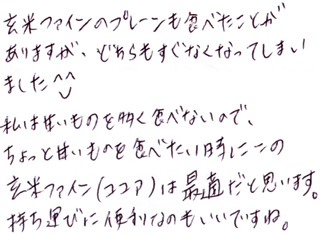 玄米ファインのプレーンも食べたことが
ありますが、どちらもすぐなくなってしまい
ました^^
私は甘いものを多く食べないので、
ちょっと甘いものを食べたい時にこの
玄米ファイン(ココア)は最適だと思います。
持ち運びに便利なのもいいですね。